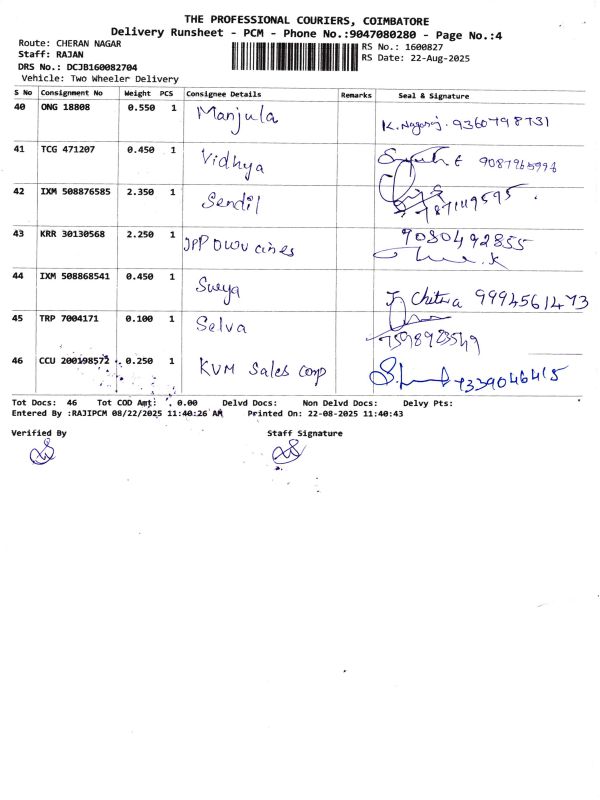 THE PROFESSIONAL COURIERS, COIMBATORE
Delivery Runsheet - PCM - Phone No.:9047080280 - Page No.:4
Route: CHERAN NAGAR
Staff: RAJAN
RS No.: 1600827
RS Date: 22-Aug-2025
DRS No.: DCJB160082704
Vehicle: Two Wheeler Delivery
S No Consignment No Weight PCS Consignee Details Remarks Seal & Signature
40 ONG 18808 0.550 1 Manjula K. Nagaraj. 9360798731
41 TCG 471207 0.450 1 Vidhya 9087965994
42 IXM 508876585 2.350 1 Sendil
43 KRR 30130568 2.250 1 9080492855
44 IXM 508868541 0.450 1 Surya J Chitra 9994561473
45 TRP 7004171 0.100 1 Selva 7598923549
46 CCU 200198572 0.250 1 KVM Sales Corp 9339046415
Tot Docs: 46 Tot COD Amt: 0.00 Delvd Docs: Non Delvd Docs: Delvy Pts:
Entered By :RAJIPCM 08/22/2025 11:40:26 AM Printed On: 22-08-2025 11:40:43
Verified By Staff Signature